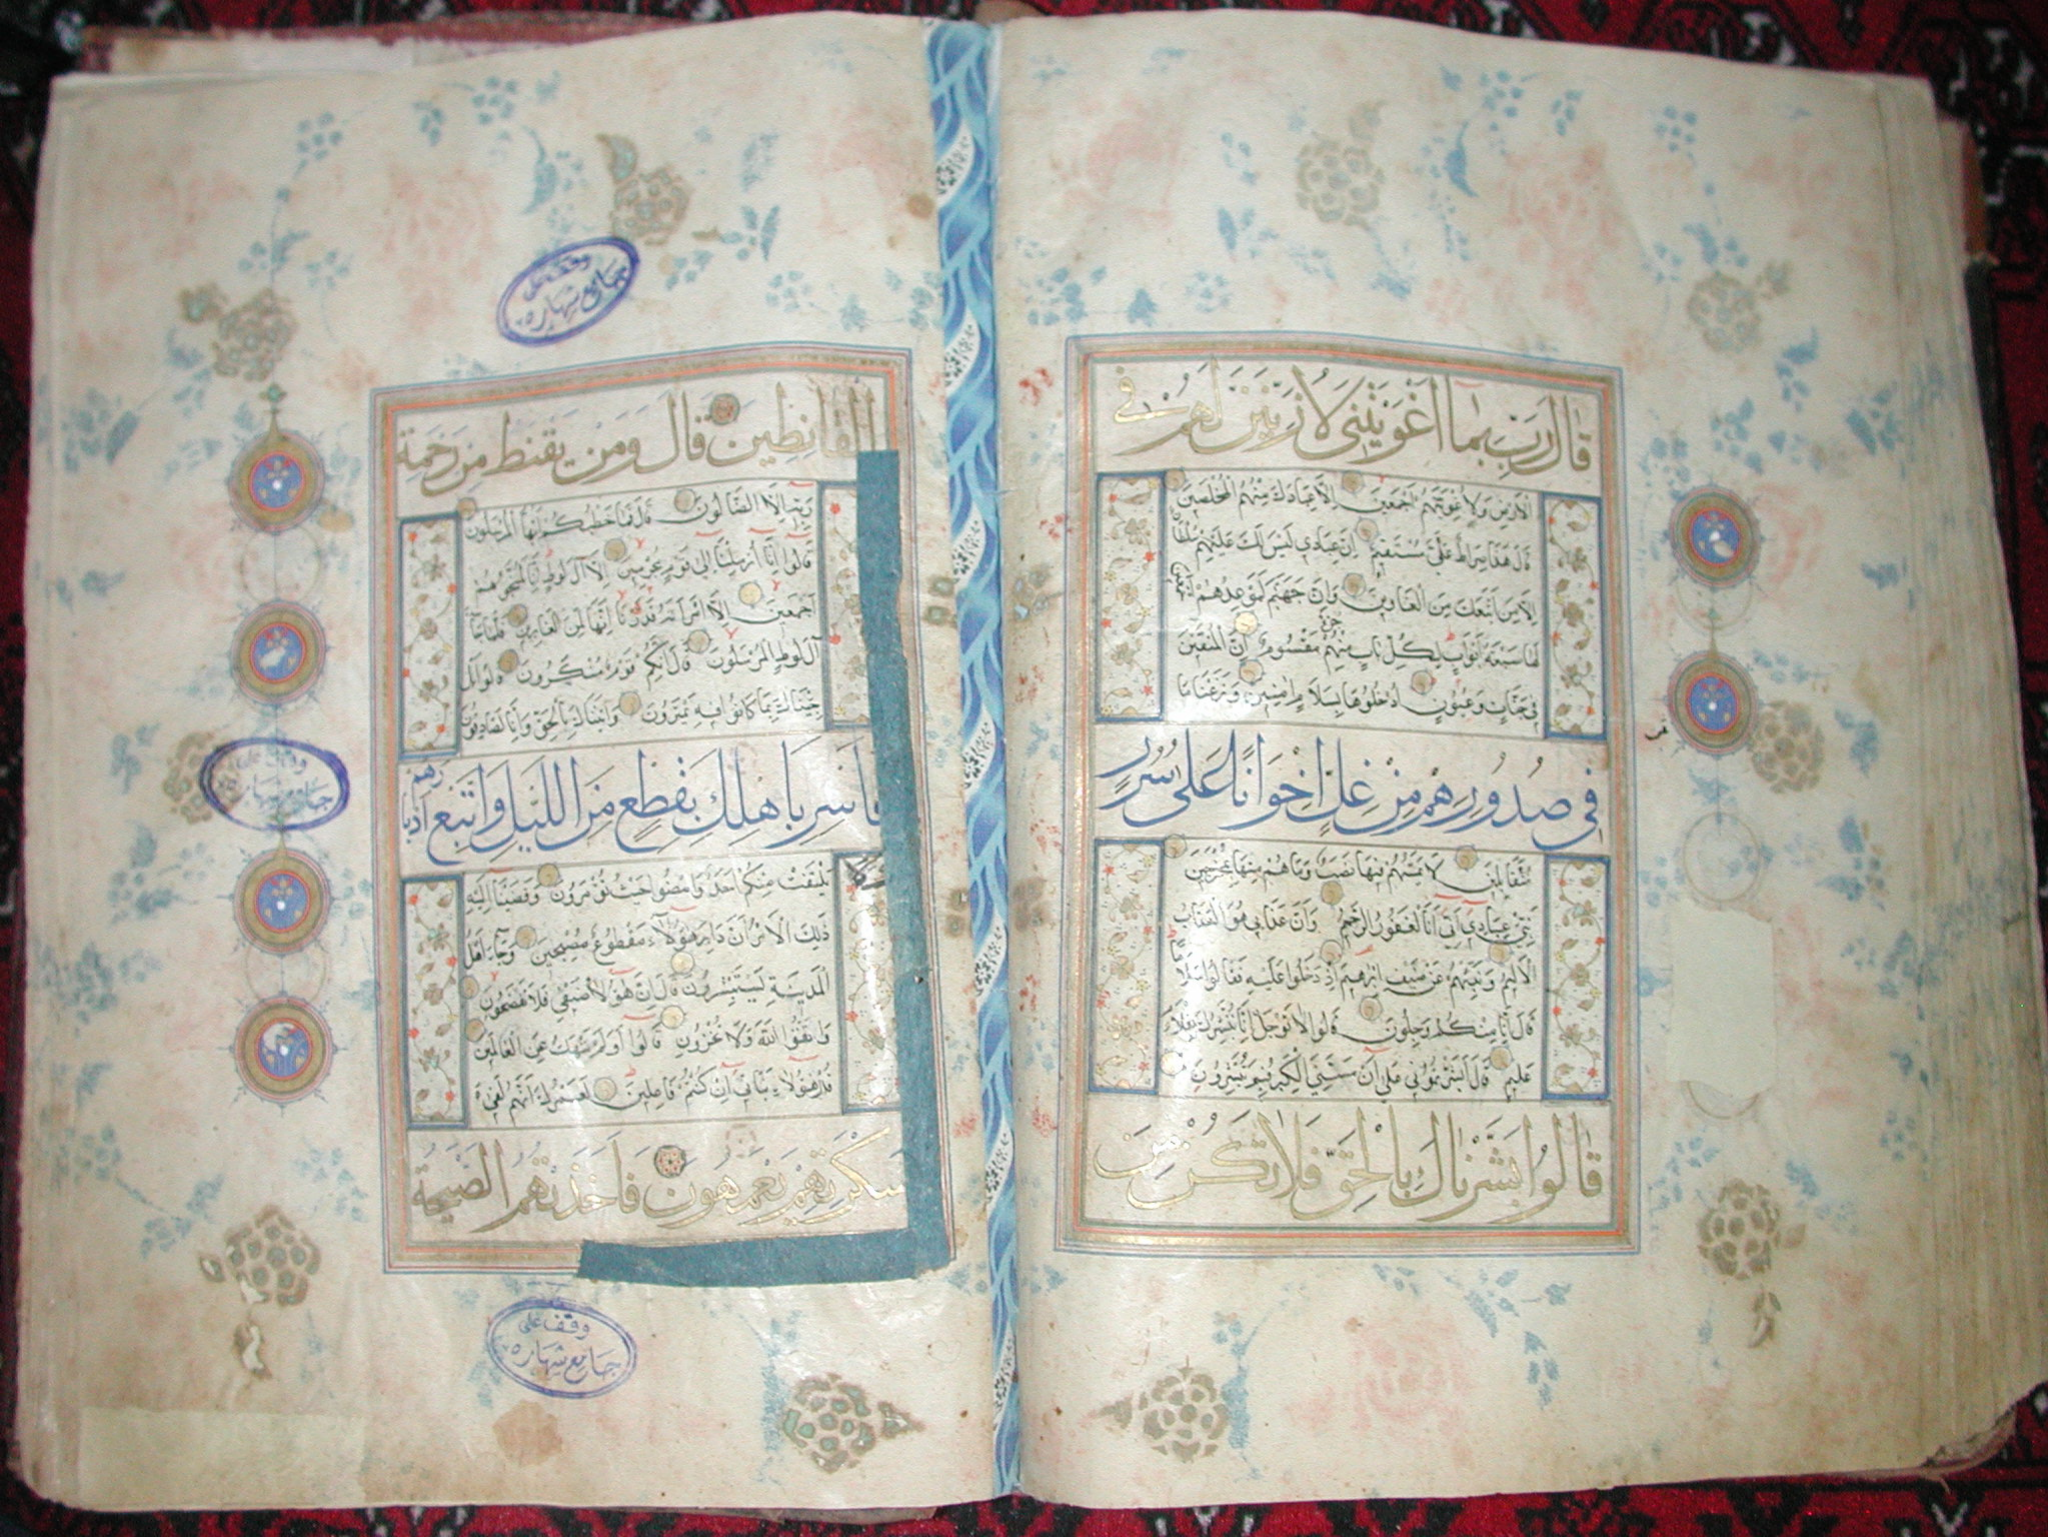 قَالَ رَبِّ بِمَا اَغْوَيْتَنِي لَاُزَيِّنَنَّ لَهُمْ فِي
الْاَرْضِ وَلَاُغْوِيَنَّهُمْ اَجْمَعِينَ اِلَّا عِبَادَكَ مِنْهُمُ الْمُخْلَصِينَ
قَالَ هَذَا صِرَاطٌ عَلَيَّ مُسْتَقِيمٌ اِنَّ عِبَادِي لَيْسَ لَكَ عَلَيْهِمْ سُلْطَانٌ
اِلَّا مَنِ اتَّبَعَكَ مِنَ الْغَاوِينَ وَاِنَّ جَهَنَّمَ لَمَوْعِدُهُمْ اَجْمَعِينَ
لَهَا سَبْعَةُ اَبْوَابٍ لِكُلِّ بَابٍ مِنْهُمْ جُزْءٌ مَقْسُومٌ اِنَّ الْمُتَّقِينَ
فِي جَنَّاتٍ وَعُيُونٍ اُدْخُلُوهَا بِسَلَامٍ اٰمِنِينَ وَنَزَعْنَا مَا
فِي صُدُورِهِمْ مِنْ غِلٍّ اِخْوَانًا عَلَى سُرُرٍ
مُتَقَابِلِينَ لَا يَمَسُّهُمْ فِيهَا نَصَبٌ وَمَا هُمْ مِنْهَا بِمُخْرَجِينَ
نَبِّئْ عِبَادِي اَنِّي اَنَا الْغَفُورُ الرَّحِيمُ وَاَنَّ عَذَابِي هُوَ الْعَذَابُ
الْاَلِيمُ وَنَبِّئْهُمْ عَنْ ضَيْفِ اِبْرٰهِيمَ اِذْ دَخَلُوا عَلَيْهِ فَقَالُوا سَلَامًا
قَالَ اِنَّا مِنْكُمْ وَجِلُونَ قَالُوا لَا تَوْجَلْ اِنَّا نُبَشِّرُكَ بِغُلَامٍ
عَلِيمٍ قَالَ اَبَشَّرْتُمُونِي عَلَى اَنْ مَسَّنِيَ الْكِبَرُ فَبِمَ تُبَشِّرُونَ
قَالُوا بَشَّرْنَاكَ بِالْحَقِّ فَلَا تَكُنْ مِنَ
وقف على
جامع شهاره
الْقَانِطِينَ قَالَ وَمَنْ يَقْنَطُ مِنْ رَحْمَةِ
رَبِّهِ اِلَّا الضَّالُّونَ قَالَ فَمَا خَطْبُكُمْ اَيُّهَا الْمُرْسَلُونَ
قَالُوا اِنَّا اُرْسِلْنَا اِلَى قَوْمٍ مُجْرِمِينَ اِلَّا آلَ لُوطٍ اِنَّا لَمُنَجُّوهُمْ
اَجْمَعِينَ اِلَّا امْرَاَتَهُ قَدَّرْنَا اِنَّهَا لَمِنَ الْغَابِرِينَ فَلَمَّا جَاءَ
آلَ لُوطٍ الْمُرْسَلُونَ قَالَ اِنَّكُمْ قَوْمٌ مُنْكَرُونَ قَالُوا بَلْ
جِئْنَاكَ بِمَا كَانُوا فِيهِ يَمْتَرُونَ وَاَتَيْنَاكَ بِالْحَقِّ وَاِنَّا لَصَادِقُونَ
فَاَسْرِ بِاَهْلِكَ بِقِطْعٍ مِنَ اللَّيْلِ وَاتَّبِعْ اَدْبَارَهُمْ
وقف على
جامع شهاره
يَلْتَفِتْ مِنْكُمْ اَحَدٌ وَامْضُوا حَيْثُ تُؤْمَرُونَ وَقَضَيْنَا اِلَيْهِ
ذَلِكَ الْاَمْرَ اَنَّ دَابِرَ هٰؤُلَاءِ مَقْطُوعٌ مُصْبِحِينَ وَجَاءَ اَهْلُ
الْمَدِينَةِ يَسْتَبْشِرُونَ قَالَ اِنَّ هٰؤُلَاءِ ضَيْفِي فَلَا تَفْضَحُونِ
وَاتَّقُوا اللَّهَ وَلَا تُخْزُونِ قَالُوا اَوَلَمْ نَنْهَكَ عَنِ الْعَالَمِينَ
قَالَ هٰؤُلَاءِ بَنَاتِي اِنْ كُنْتُمْ فَاعِلِينَ لَعَمْرُكَ اِنَّهُمْ لَفِي
سَكْرَتِهِمْ يَعْمَهُونَ فَاَخَذَتْهُمُ الصَّيْحَةُ
وقف على
جامع شهاره